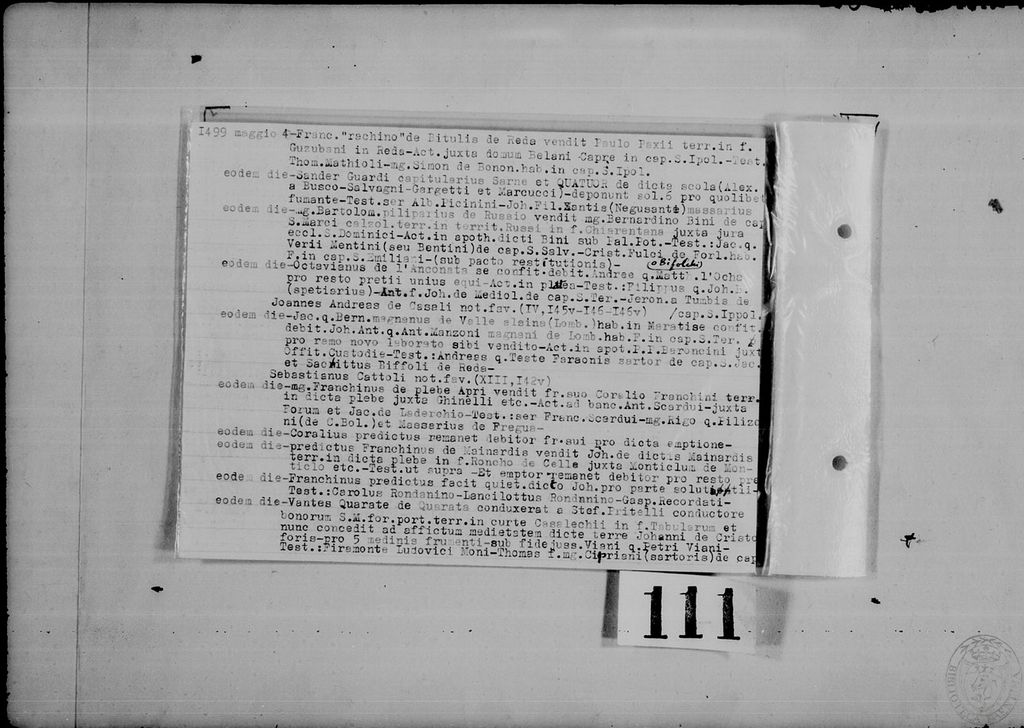 1499 maggio 4-Franc."rachino"de Bitulis de Reda vendit Paulo Paxii terr.in f.
Guzubani in Reda-Act.juxta domum Belani Capre in cap.S.Ipol.-Test.
Thom.Mathioli-mg.Simon de Bonon.hab.in cap.S.Ipol.
eodem die-Sander Guardi capitularius Sarne et QUATUOR de dicta scola(Alex.
a Busco-Salvagni-Gargetti et Marcucci)-deponunt sol.6 pro quolibet
fumante-Test.ser Alb.Picinini-Joh.Fil.Xantis(Negusante)massarius
eodem die-mg.Bartolom.piliparius de Russio vendit mg.Bernardino Bini de cap
S.Marci calzol.terr.in territ.Russi in f.Chiarentana juxta jura
eccl.S.Dominici-Act.in apoth.dicti Bini sub Pal.Pot.-Test.:Jac.q.
Verii Mentini(seu Bentini)de cap.S.Salv.-Crist.Fulci de Forl.hab.
F.in cap.S.Emiliani-(sub pacto restitutionis)-
o Bifolchi
eodem die-Octavianus de l'Anconata se confit.debit.Andree q.Matt. l'Ocha
pro resto pretii unius equi-Act.in platea-Test.:Filippus q.Joh.
(spetiarius)-Ant.f.Joh.de Mediol.de cap.S.Ter.-Jeron.a Tumbis de
Joannes Andreas de Casali not.fav.(IV,I45v-I46-I46v) /cap.S.Ippol.
eodem die-Jac.q.Bern.magnanus de Valle alsina(Lomb.)hab.in Maratise confit.
debit.Joh.Ant.q.Ant.Manzoni magnani de Lomb.hab.F.in cap.S.Ter.
pro ramo novo laborato sibi vendito-Act.in apot.I.I.Baroncini juxt
Offit.Custodie-Test.:Andreas q.Teste Faraonis sartor de cap.S.Jac.
et Sacmittus Biffoli de Reda-
Sebastianus Cattoli not.fav.(XIII,I42v)
eodem die-mg.Franchinus de plebe Apri vendit fr.suo Coralio Franchini terr.
in dicta plebe juxta Ghinelli etc.-Act.ad banc.Ant.Scardui-juxta
Forum et Jac.de Laderchio-Test.:ser Franc.Scardui-mg.Rigo q.Filizo
ni(de C.Bol.)et Massarius de Fregua-
eodem die-Coralius predictus remanet debitor fr.sui pro dicta emptione-
eodem die-predictus Franchinus de Mainardis vendit Joh.de dictis Mainardis
terr.in dicta plebe in f.Roncho de Celle juxta Monticlum de Mon-
ticlo etc.-Test.ut supra -Et emptor remanet debitor pro resto pre
eodem die-Franchinus predictus facit quiet.dicto Joh.pro parte solut
Test.:Carolus Rondanino-Lancilottus Rondnnino-Gasp.Recordati-
eodem die-Vantes Quarate de Quarata conduxerat a Stef.Pritelli conductore
bonorum S.M.for.port.terr.in curte Casalechii in f.Tabularum et
nunc concedit ad affictum medietatem dicte terre Johanni de Cristo
foris-pro 5 medinis frumenti-sub fidejuss.Viani q.Petri Viani-
Test.:Firamonte Ludovici Moni-Thomas f.mg.Cipriani(sartoris)de cap
111